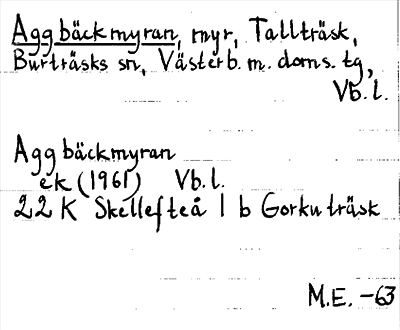 Aggbäckmyran, myr, Tallträsk,
Burträsks sn, Västerb. m. doms. tg,
Vb. l.
Aggbäckmyran
ek (1961) Vb. l.
22 K Skellefteå 1 b Gorkuträsk
M.E. -63